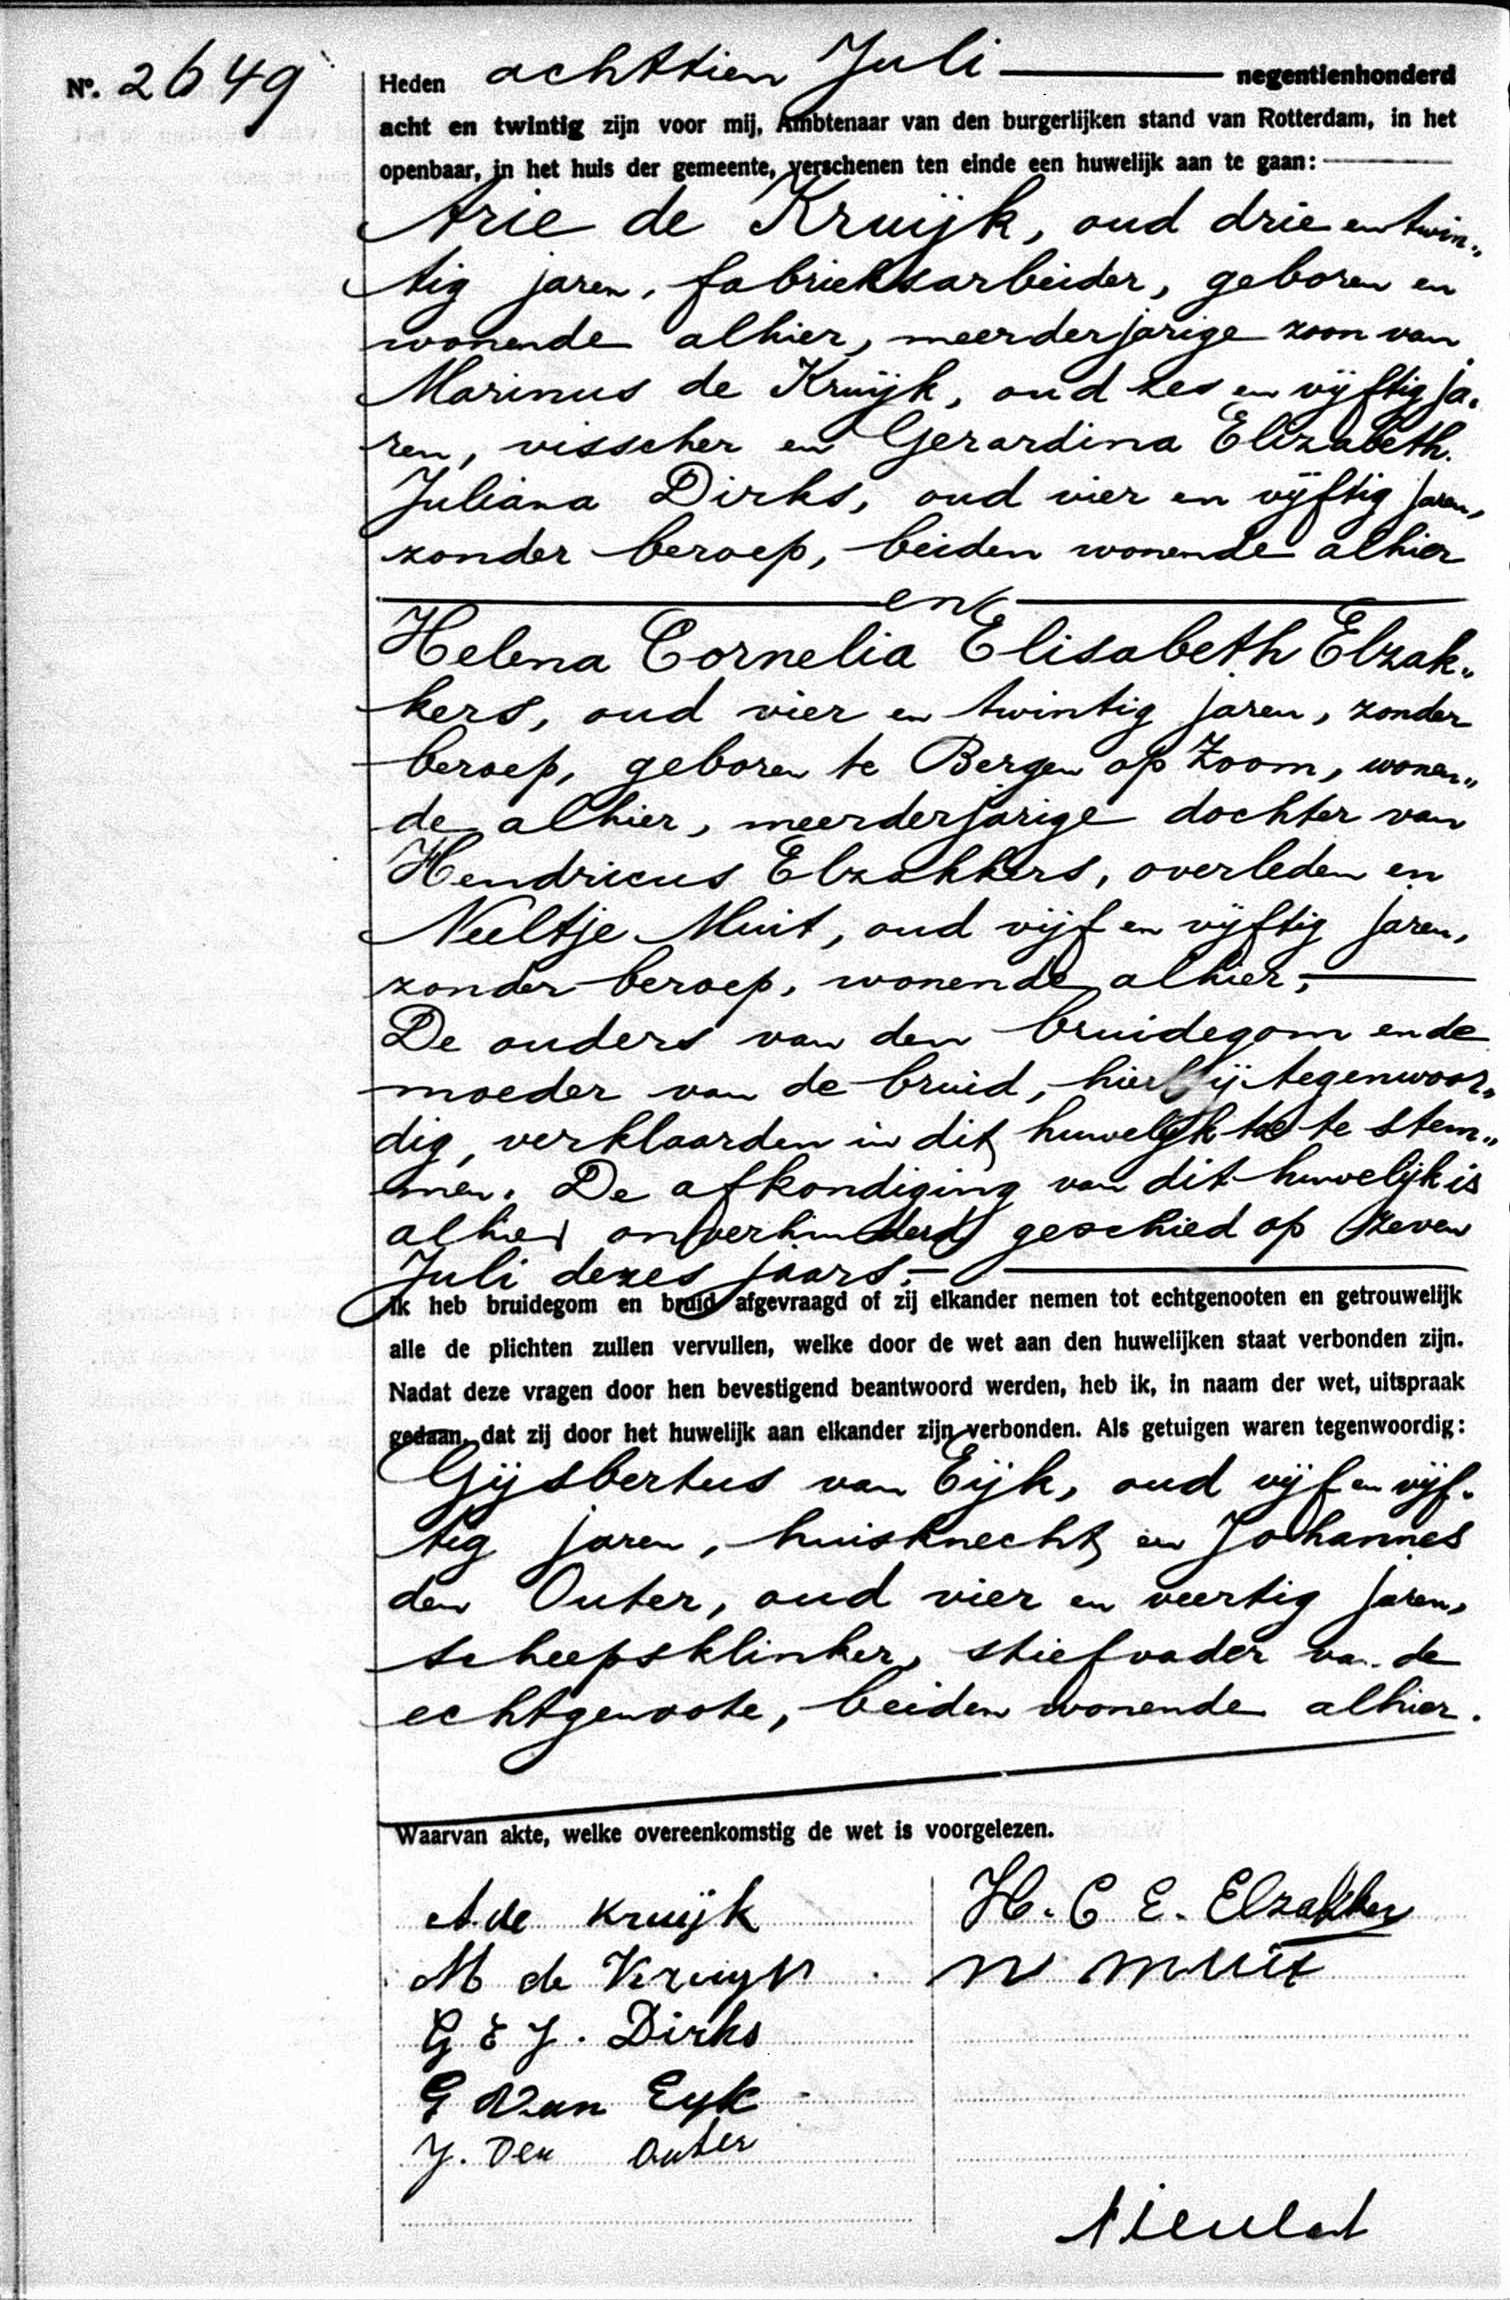 No. 2649
Heden achttien Juli negentienhonderd
acht en twintig zijn voor mij, Ambtenaar van den burgerlijken stand van Rotterdam, in het
openbaar, in het huis der gemeente, verschenen ten einde een huwelijk aan te gaan:
Arie de Kruijk, oud drie en twin„
tig jaren, fabrieksarbeider, geboren en
wonende alhier, meerderjarige zoon van
Marinus de Kruijk, oud zes en vijftig ja„
ren, visscher en Gerardina Elizabeth
Juliana Dirks, oud vier en vijftig jaren,
zonder beroep, beiden wonende alhier
en
Helena Cornelia Elisabeth Elzak„
kers, oud vier en twintig jaren, zonder
beroep, geboren te Bergen op Zoom, wonen„
de alhier, meerderjarige dochter van
Hendricus Elzakkers, overleden en
Neeltje Muit, oud vijf en vijftig jaren,
zonder beroep, wonende alhier,
De ouders van den bruidegom en de
moeder van de bruid, hierbij tegenwoor„
dig, verklaarden in dit huwelijk toe te stem„
men. De afkondiging van dit huwelijk is
alhier onverhinderd geschied op zeven
Juli dezes jaars.
Ik heb bruidegom en bruid afgevraagd of zij elkander nemen tot echtgenooten en getrouwelijk
alle de plichten zullen vervullen, welke door de wet aan den huwelijken staat verbonden zijn.
Nadat deze vragen door hen bevestigend beantwoord werden, heb ik, in naam der wet, uitspraak
gedaan, dat zij door het huwelijk aan elkander zijn verbonden. Als getuigen waren tegenwoordig:
Gijsbertus van Eijk, oud vijf en vijf„
tig jaren, huisknecht en Johannes
den Outer, oud vier en veertig jaren,
scheepsklinker, stiefvader van de
echtgenoote, beiden wonende alhier.
Waarvan akte, welke overeenkomstig de wet is voorgelezen.
A de Kruijk
H. C E. Elzakkers
M de Kruijk
N Muit
G E J. Dirks
G Van Eyk
J. Den Outer